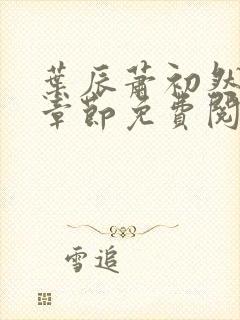 葉辰蕭初然
章節免費閱
雪追